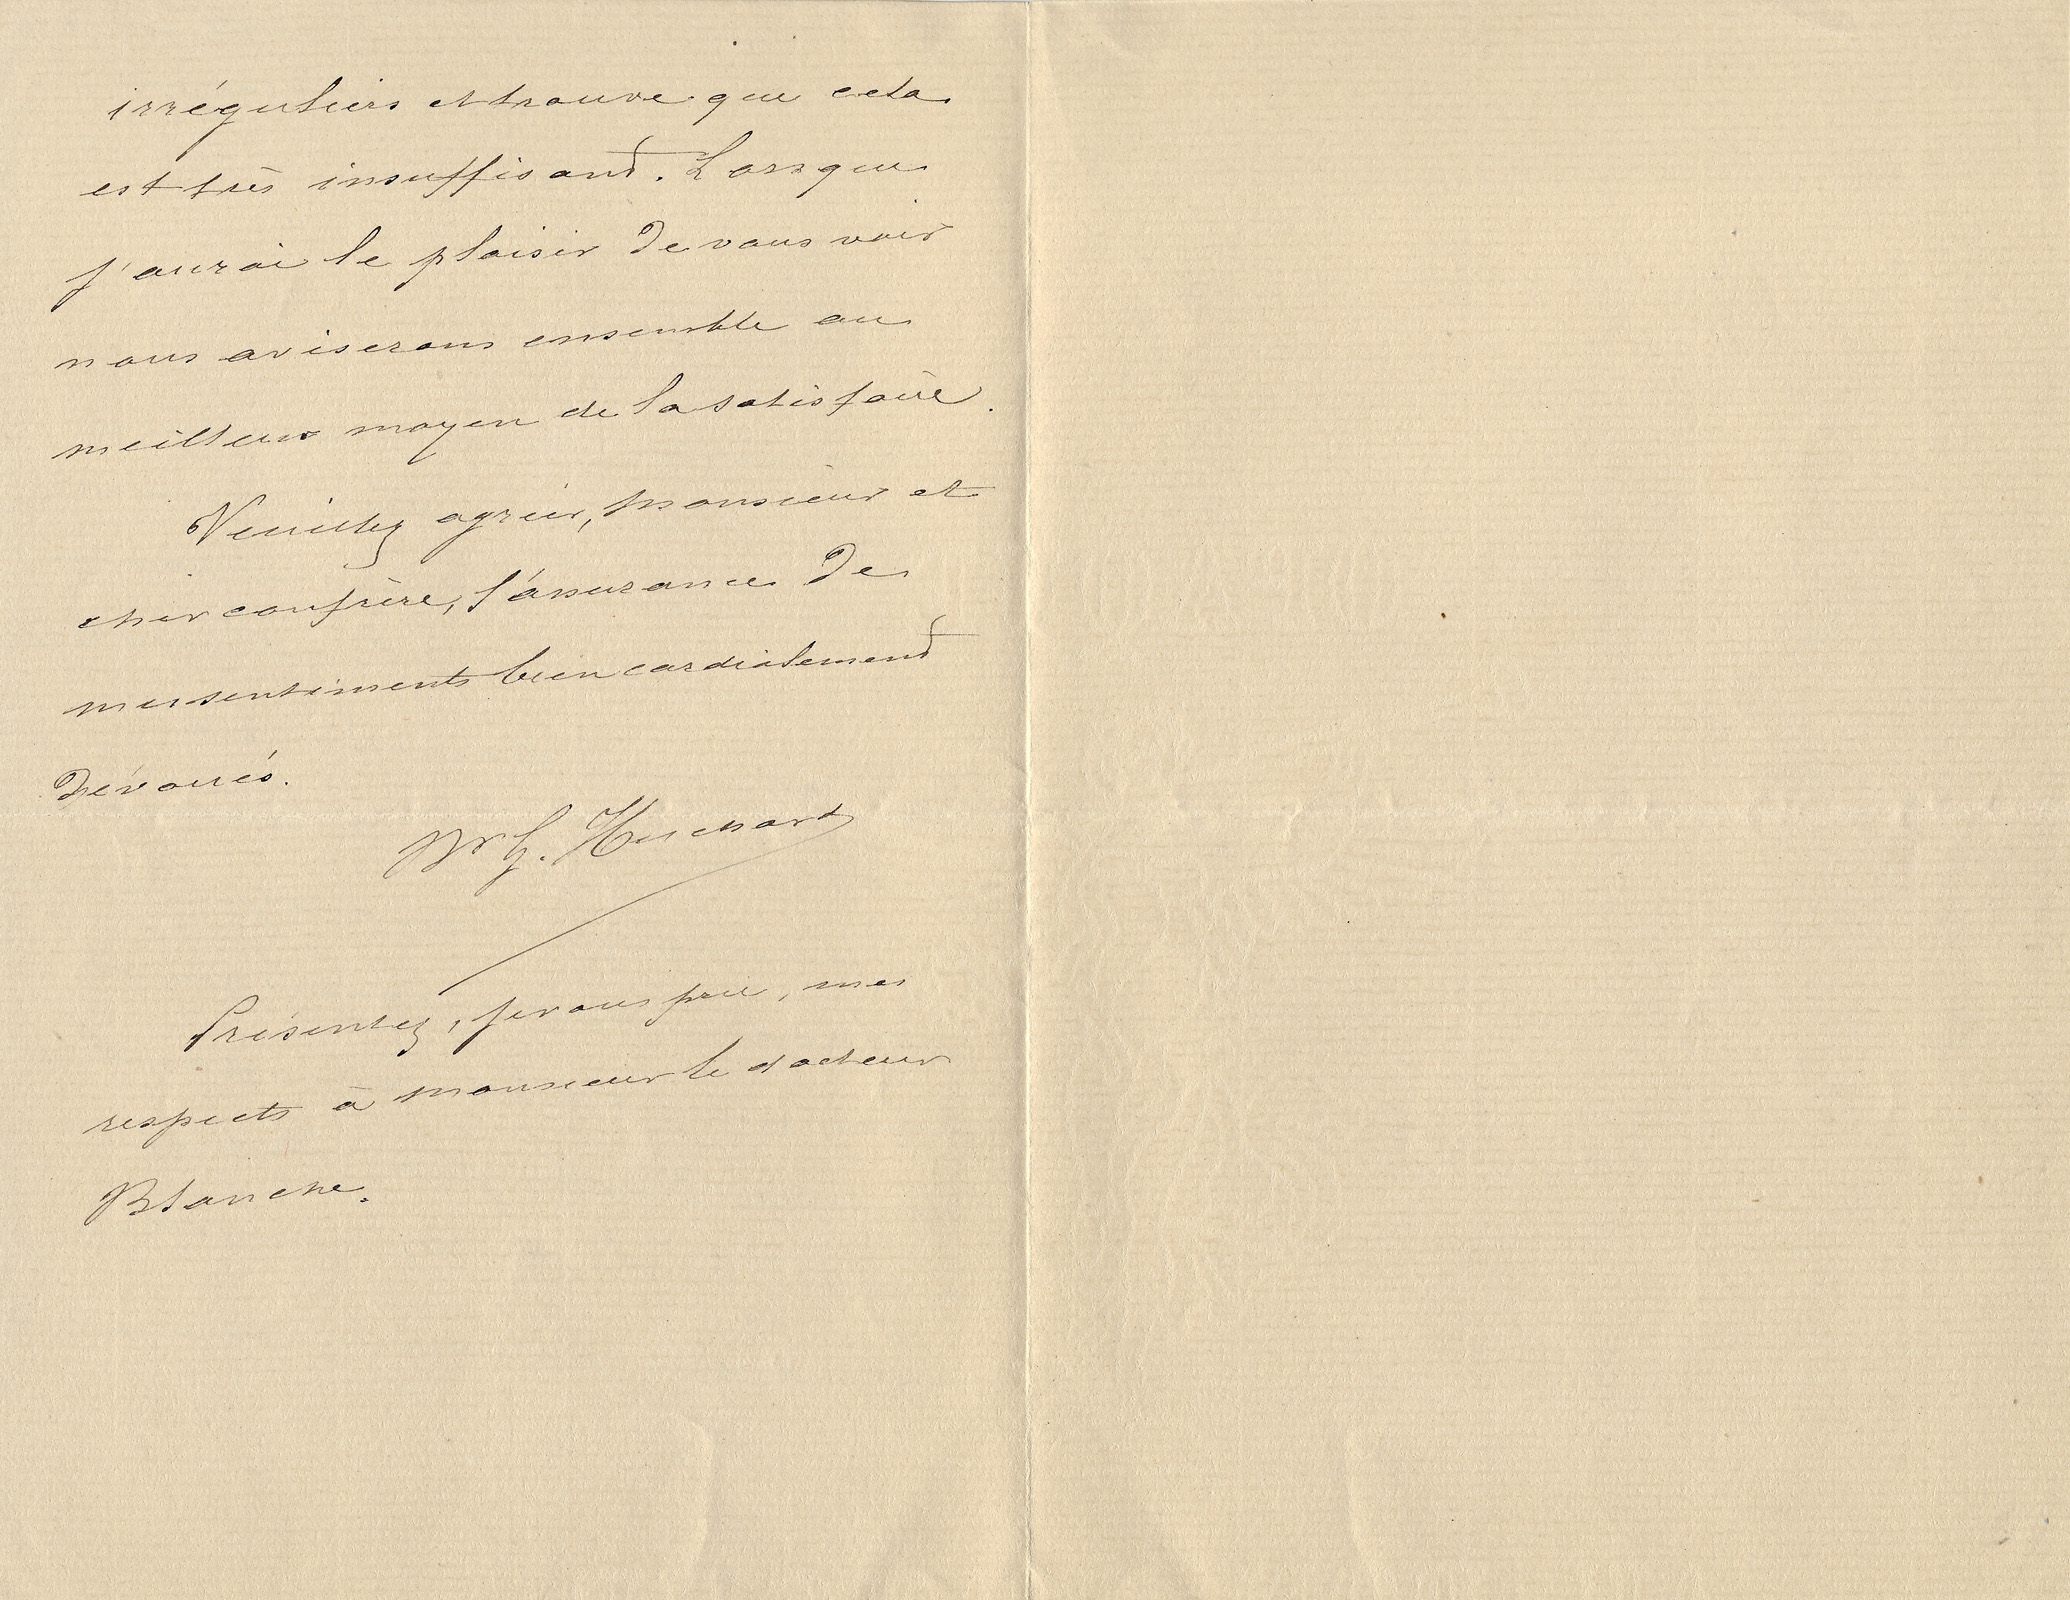 irréguliers et trouve que cela
est très insuffisant. Lorsque
j'aurai le plaisir de vous voir
nous aviserons ensemble au
meilleur moyen de la satisfaire.
Veuillez agréer, monsieur et
cher confrère, l'assurance de
mes sentiments bien cordialement
dévoués.
Dr G. Huchard
Présentez, je vous prie, mes
respects à monsieur le docteur
Blanche.